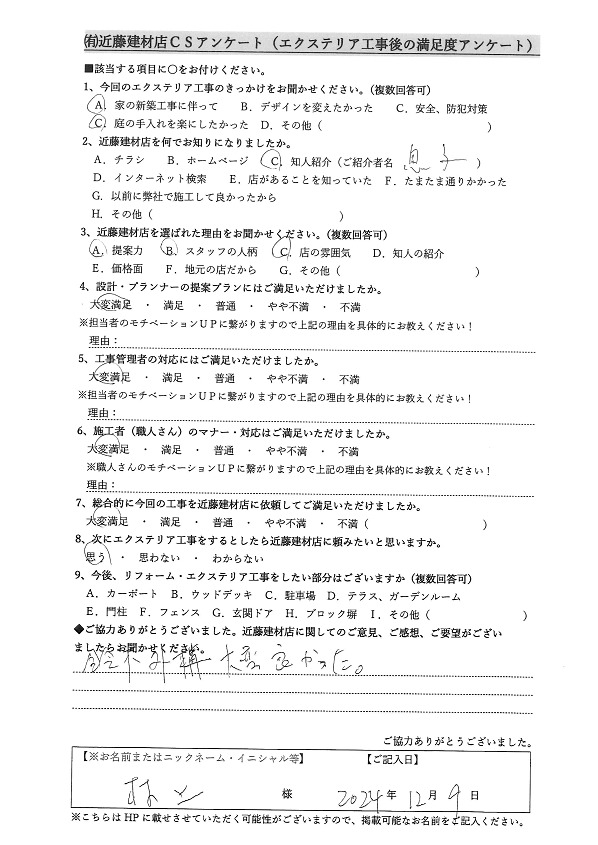 ㈲近藤建材店ＣＳアンケート（エクステリア工事後の満足度アンケート）
■該当する項目に〇をお付けください。
1、今回のエクステリア工事のきっかけをお聞かせください。（複数回答可）
A．家の新築工事に伴って　B．デザインを変えたかった　C．安全、防犯対策
C．庭の手入れを楽にしたかった　D．その他（　）
2、近藤建材店を何でお知りになりましたか。
A．チラシ　B．ホームページ　C．知人紹介（ご紹介者名　息子　）
D．インターネット検索　E．店があることを知っていた　F．たまたま通りかかった
G．以前に弊社で施工して良かったから
H．その他（　）
3、近藤建材店を選ばれた理由をお聞かせください。（複数回答可）
A．提案力　B．スタッフの人柄　C．店の雰囲気　D．知人の紹介
E．価格面　F．地元の店だから　G．その他（　）
4、設計・プランナーの提案プランにはご満足いただけましたか。
大変満足　・　満足　・　普通　・　やや不満　・　不満
※担当者のモチベーションＵＰに繋がりますので上記の理由を具体的にお教えください！
理由：
5、工事管理者の対応にはご満足いただけましたか。
大変満足　・　満足　・　普通　・　やや不満　・　不満
※担当者のモチベーションＵＰに繋がりますので上記の理由を具体的にお教えください！
理由：
6、施工者（職人さん）のマナー・対応はご満足いただけましたか。
大変満足　・　満足　・　普通　・　やや不満　・　不満
※職人さんのモチベーションＵＰに繋がりますので上記の理由を具体的にお教えください！
理由：
7、総合的に今回の工事を近藤建材店に依頼してご満足いただけましたか。
大変満足　・　満足　・　普通　・　やや不満　・　不満（　）
8、次にエクステリア工事をするとしたら近藤建材店に頼みたいと思いますか。
思う　・　思わない　・　わからない
9、今後、リフォーム・エクステリア工事をしたい部分はございますか（複数回答可）
A．カーポート　B．ウッドデッキ　C．駐車場　D．テラス、ガーデンルーム
E．門柱　F．フェンス　G．玄関ドア　H．ブロック塀　I．その他（　）
◆ご協力ありがとうございました。近藤建材店に関してのご意見、ご感想、ご要望がござい
ましたらお聞かせください。
外構 大変良かった。
ご協力ありがとうございました。
【※お名前またはニックネーム・イニシャル等】　【ご記入日】
様　2024年12月9日
※こちらはHPに載せさせていただく可能性がございますので、掲載可能なお名前をご記入ください。